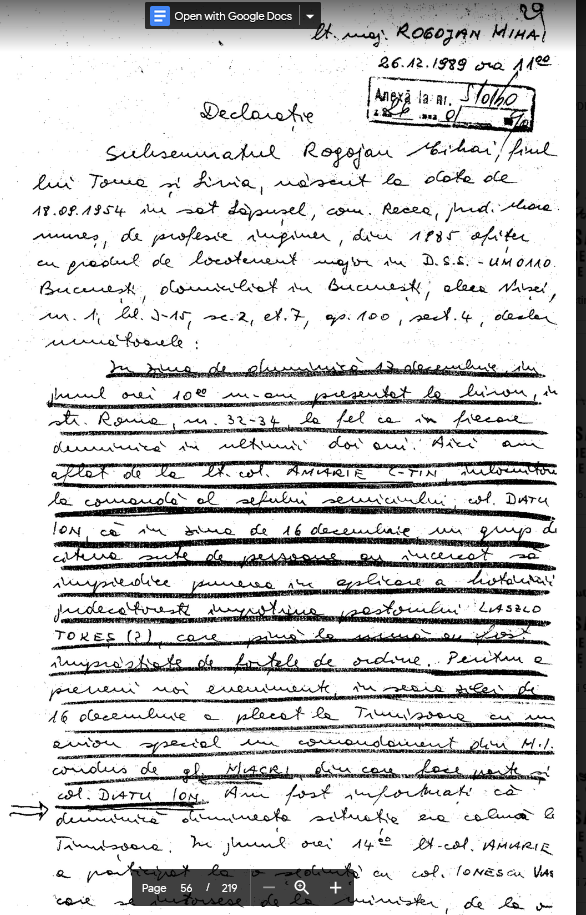 Open with Google Docs
29
lt. maj. ROGOJAN MIHAI
26.12.1989 ora 11⁰⁰
Anexă la nr.
Declarație
Subsemnatul Rogojan Mihai, fiul
lui Toma și Livia, născut la data de
18.09.1954 în sat Lăpușel, com. Recea, jud. Mara-
mureș, de profesie inginer, din 1985 ofițer
cu gradul de locotenent major în D.S.S. - UM 0110
București, domiciliat în București, aleea
nr. 1, bl. J-15, sc. 2, et. 7, ap. 100, sect. 4, declar
următoarele:
În ziua de duminică 17 decembrie în
jurul orei 10⁰⁰ m-am prezentat la birou, în
str. Roma, nr. 32-34, la fel ca în fiecare
duminică în ultimii doi ani. Aici am
aflat de la lt. col. AMARIE C-TIN, înlocuitor
la comandă al șefului serviciului, col. DATU
ION, că în ziua de 16 decembrie un grup de
cîteva sute de persoane au încercat să
împiedice punerea în aplicare a hotărîrii
judecătorești împotriva pastorului LASZLO
TOKES (?), care pînă la urmă au fost
împrăștiate de forțele de ordine. Pentru a
preveni noi evenimente, în seara zilei de
16 decembrie a plecat la Timișoara cu un
avion special un comandament din M.I.
condus de gl. MACRI, din care face parte și
col. DATU ION. Am fost informați că
duminică dimineața situația era calmă la
Timișoara. În jurul orei 14⁰⁰ lt. col. AMARIE
a participat la o ședință cu col. IONESCU
care se întorsese de la ministru, de la o
Page 56 / 219